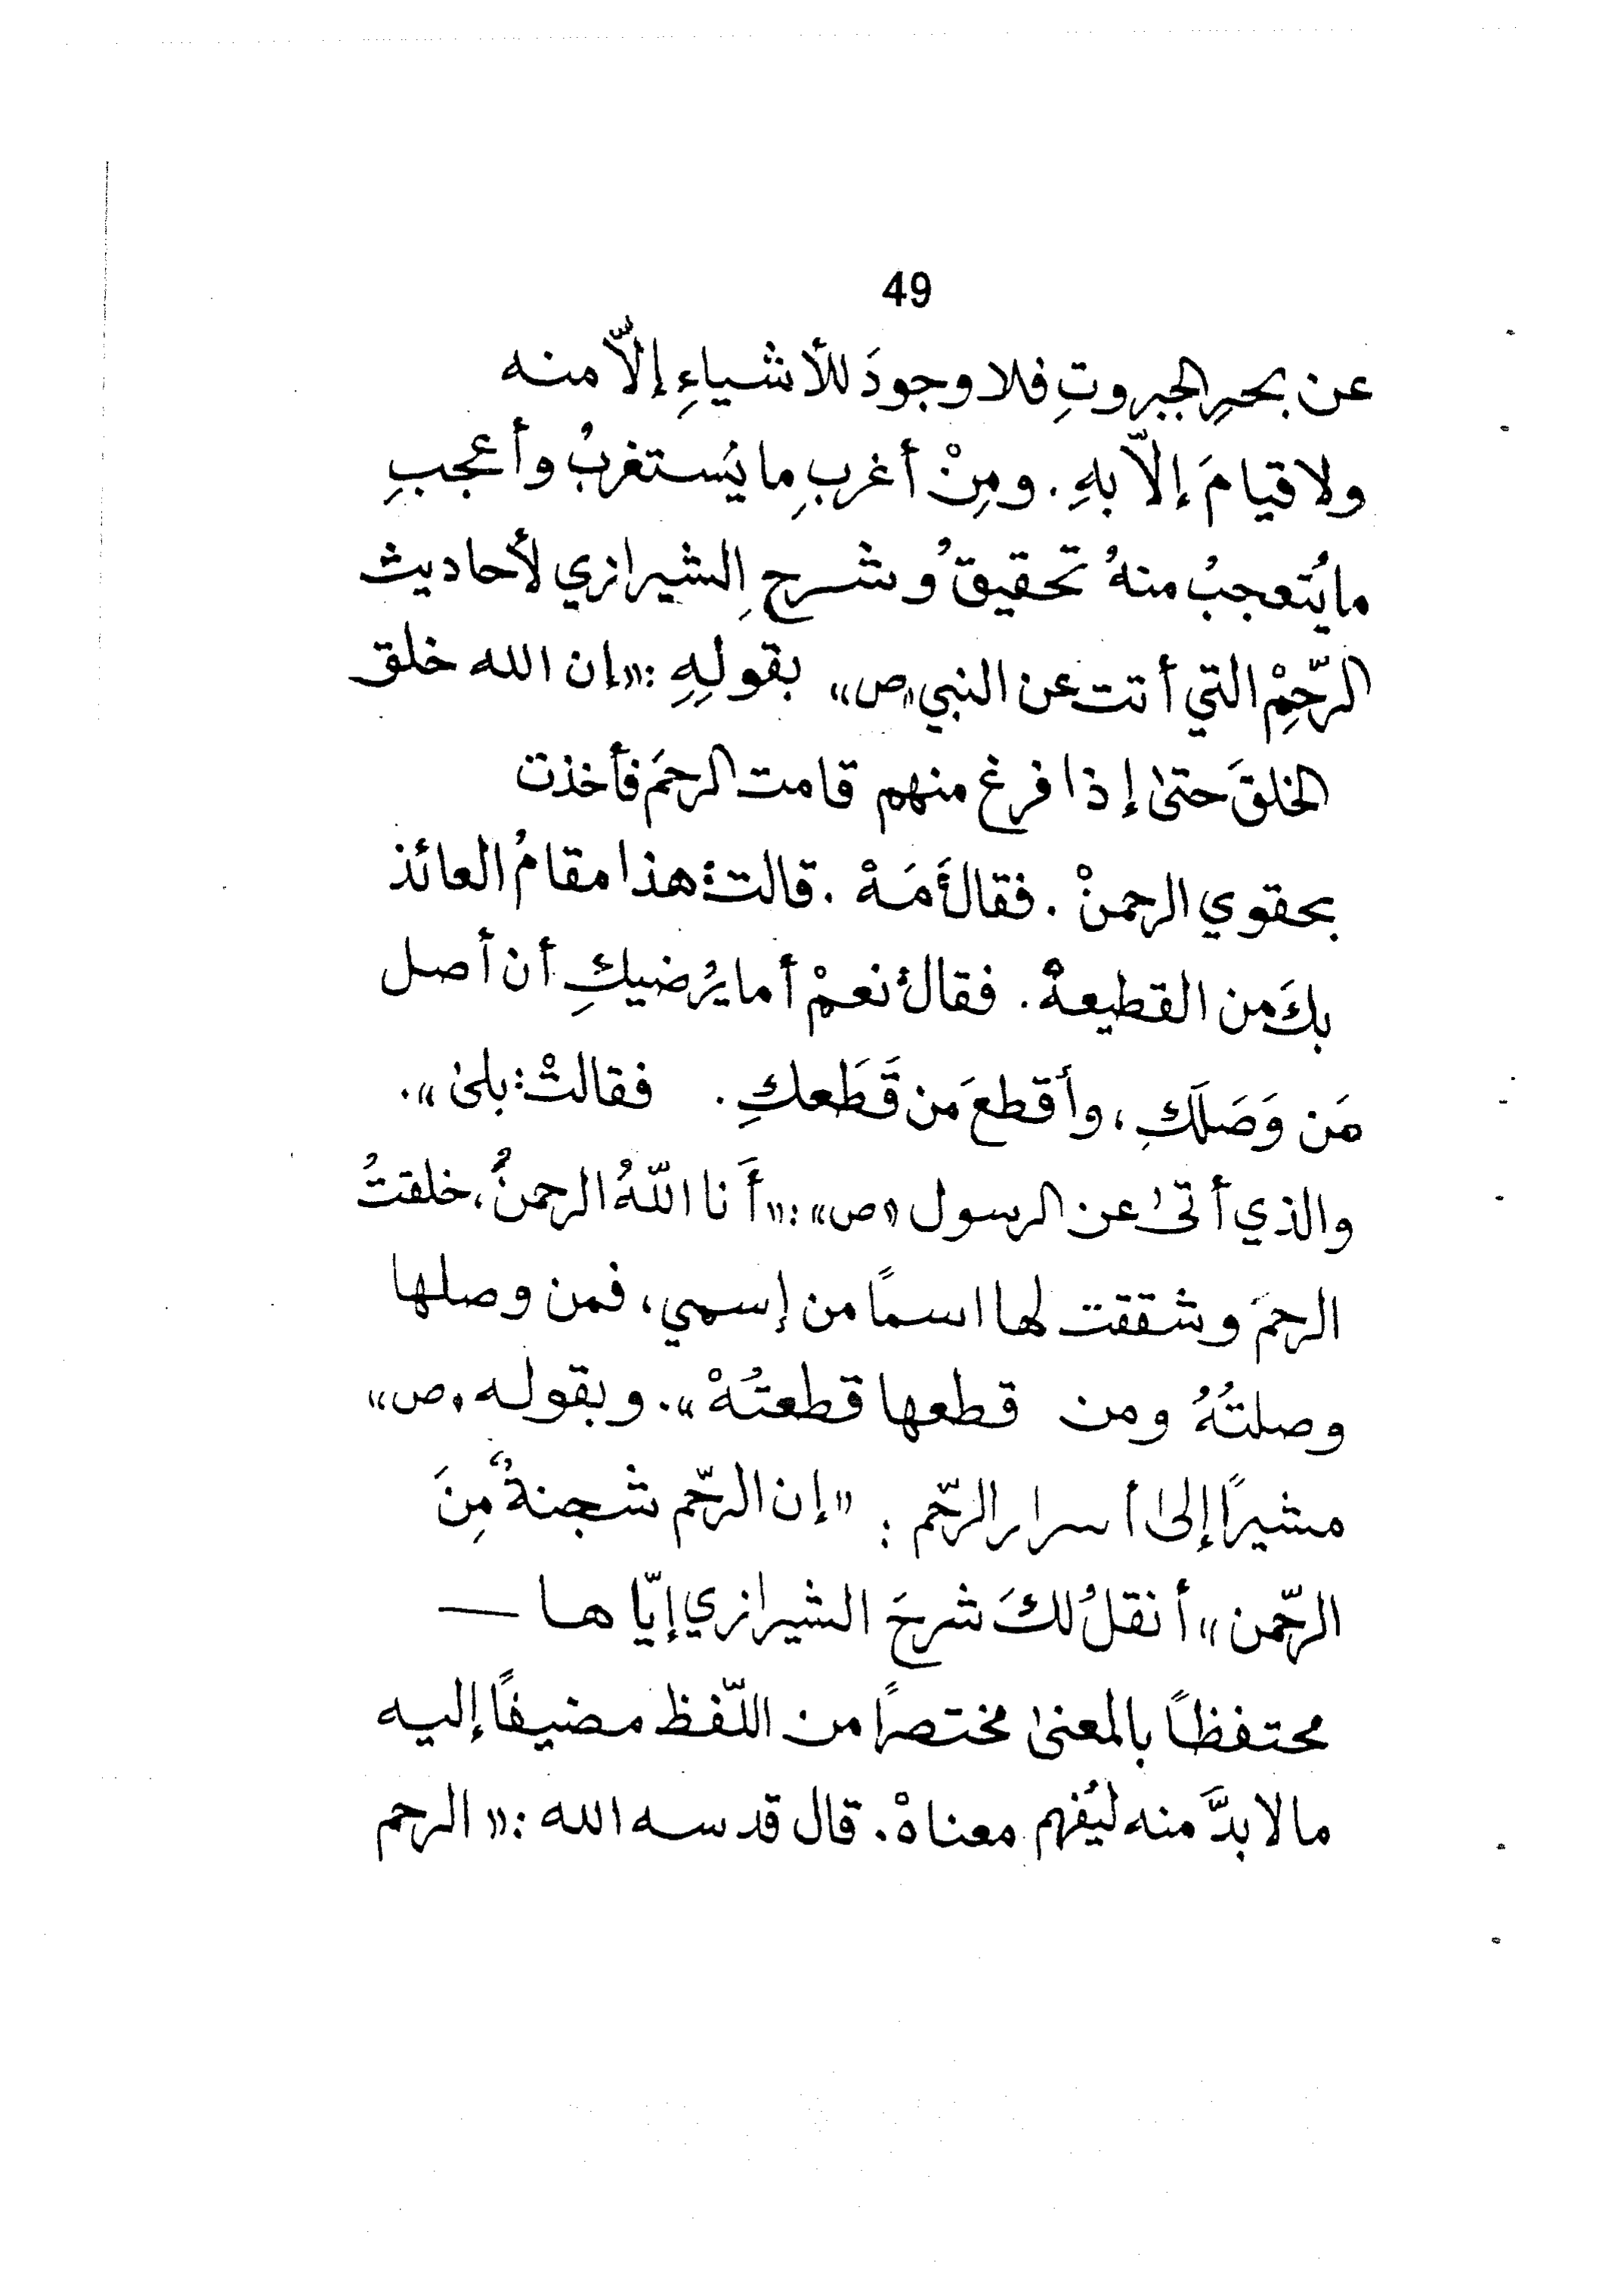 49
عن بحرِ الجبروتِ فلا وجودَ للأشياءِ إلاّ منه
ولا قيامَ إلاّ بهِ. ومِنْ أغربِ ما يُستغربُ وأعجبِ
ما يُتعجبُ منهُ تحقيقُ وشرحِ الشيرازي لأحاديث
الرّحِمْ التي أتت عن النبي «ص» بقولِهِ :«إن الله خلق
الخلقَ حتىٰ إذا فرغ منهم قامت الرحمَ فأخذت
بحقوي الرحمنْ . فقالَ مَهْ . قالت: هذا مقامُ العائذ
بكَ من القطيعهْ. فقالَ نعمْ أما يُرضيكِ أن أصل
مَن وَصَلَكِ، وأقطعَ مَن قَطَعكِ. فقالتْ: بلىٰ».
والذي أتىٰ عن الرسول «ص»:«أَنا اللّهُ الرحمنُ، خلقتُ
الرحمَ وشققت لها اسماً من إسمي، فمن وصلها
وصلتُهُ ومن قطعها قطعتُهْ». وبقوله «ص»
مشيراً إلىٰ أسرار الرّحم : «إن الرّحم شجنةٌ مِنَ
الرّحمن» أنقلُ لكَ شرحَ الشيرازي إيّاها —
محتفظاً بالمعنىٰ مختصراً من اللّفظ مضيفاً إليه
مالا بدَّ منه ليُفهم معناهْ. قال قدسه الله :«الرحم